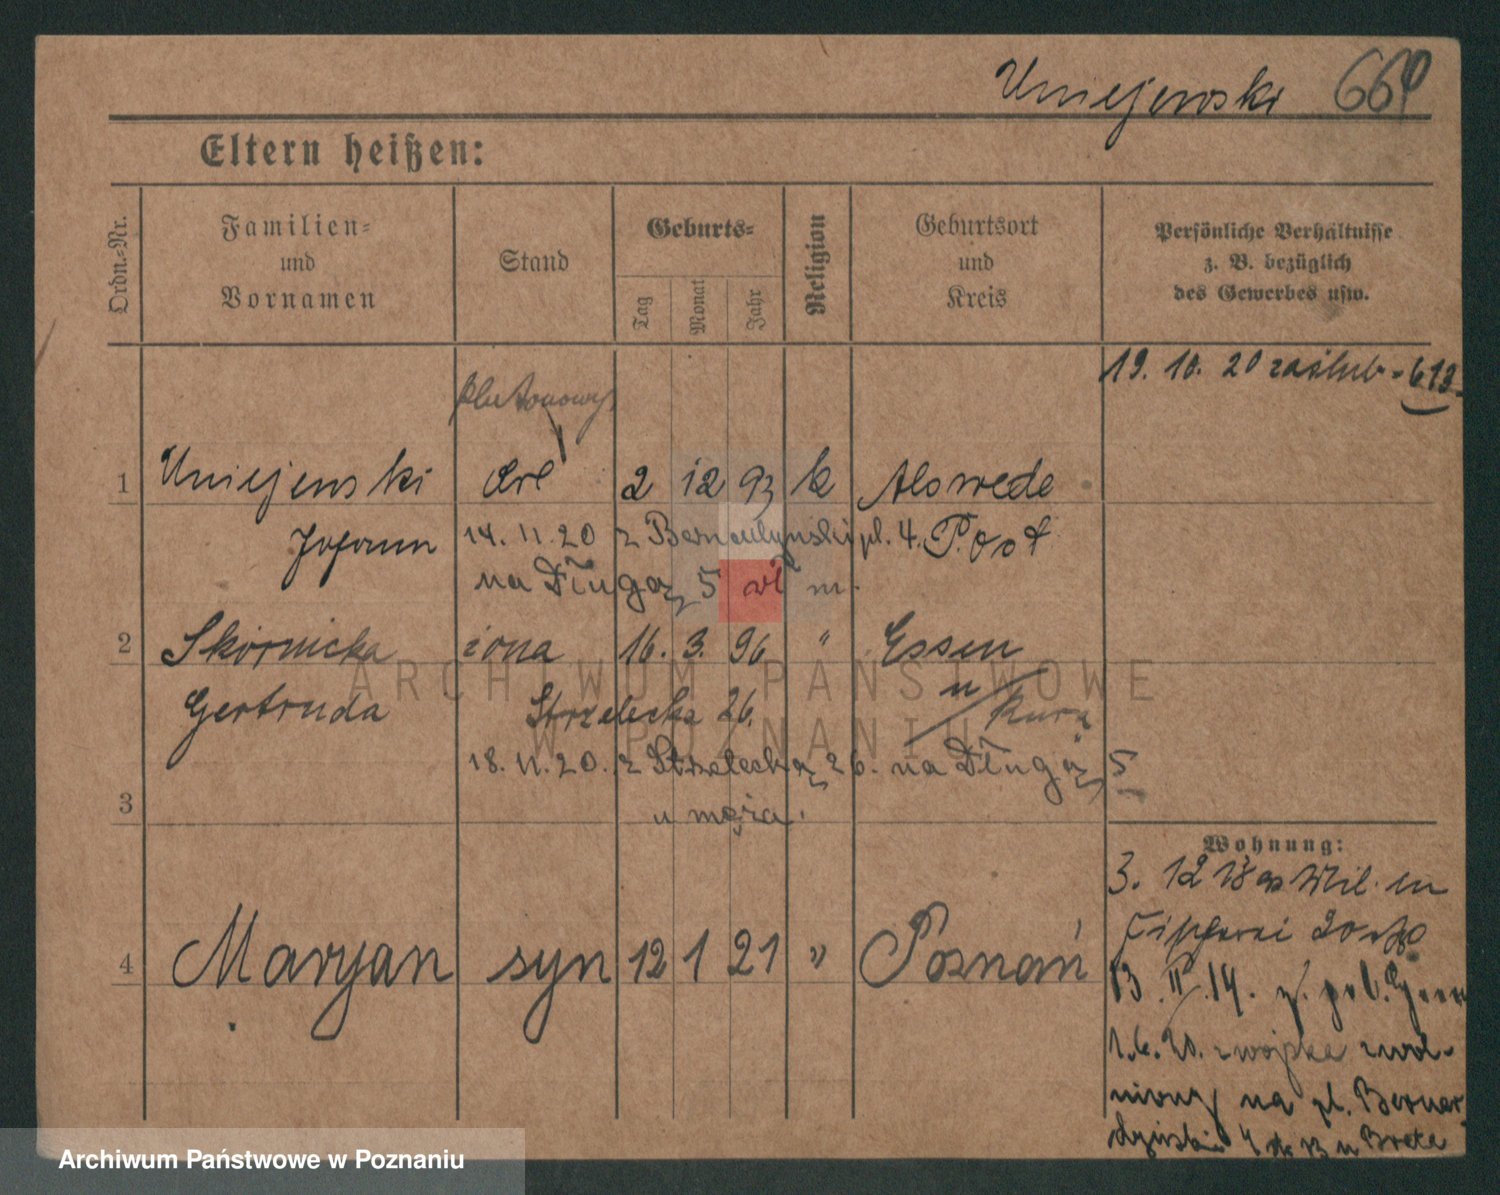 Uniejewski 664
Eltern heißen:
Ordn.-Nr.
Familien-
und
Vornamen
Stand
Geburts-
Tag
Monat
Jahr
Religion
Geburtsort
und
Kreis
Persönliche Verhältnisse
z. B. bezüglich
des Gewerbes usw.
19. 10. 20 zaślub. 613
plutonowy
1 Uniejewski 2 12 93 k Alswede
Johann 14. 11. 20 z Bernardyński pl. 4. Post
na Długą 5 m.
2 Skórnicka żona 16. 3. 96 " Essen
Gertruda Strzelecka 26.
18. 11. 20. z Strzelecka 26. na Długą 5
u męża.
3
Wohnung:
3. 12 13 Mil. in
4 Maryan syn 12 1 21 " Poznań
13. II. 14.
1. 6. 20. z wojska zwol-
niony na pl. Bernar
dyński 4
ARCHIWUM PAŃSTWOWE
W POZNANIU
Archiwum Państwowe w Poznaniu